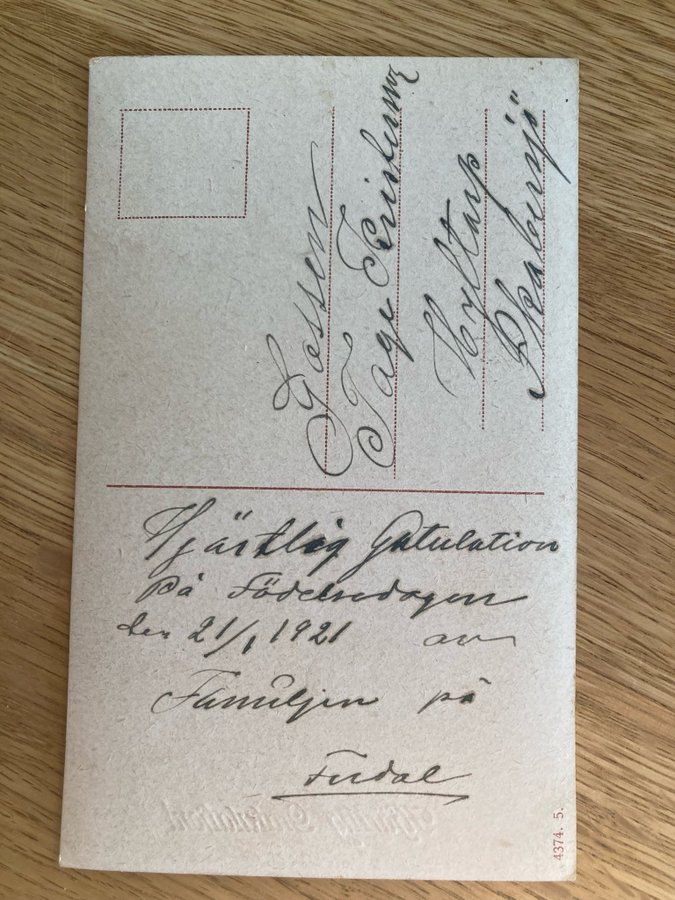 Gossen
Tage Cristensen
Hyltarp
Skabersjö
Hjärtlig Gatulation
På Födelsedagen
den 21/1 1921 av
Familjen på
Fredal
4374. 5.